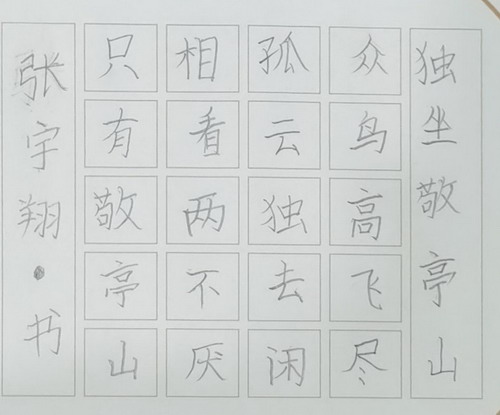 独坐敬亭山
众鸟高飞尽
孤云独去闲
相看两不厌
只有敬亭山
张宇翔·书